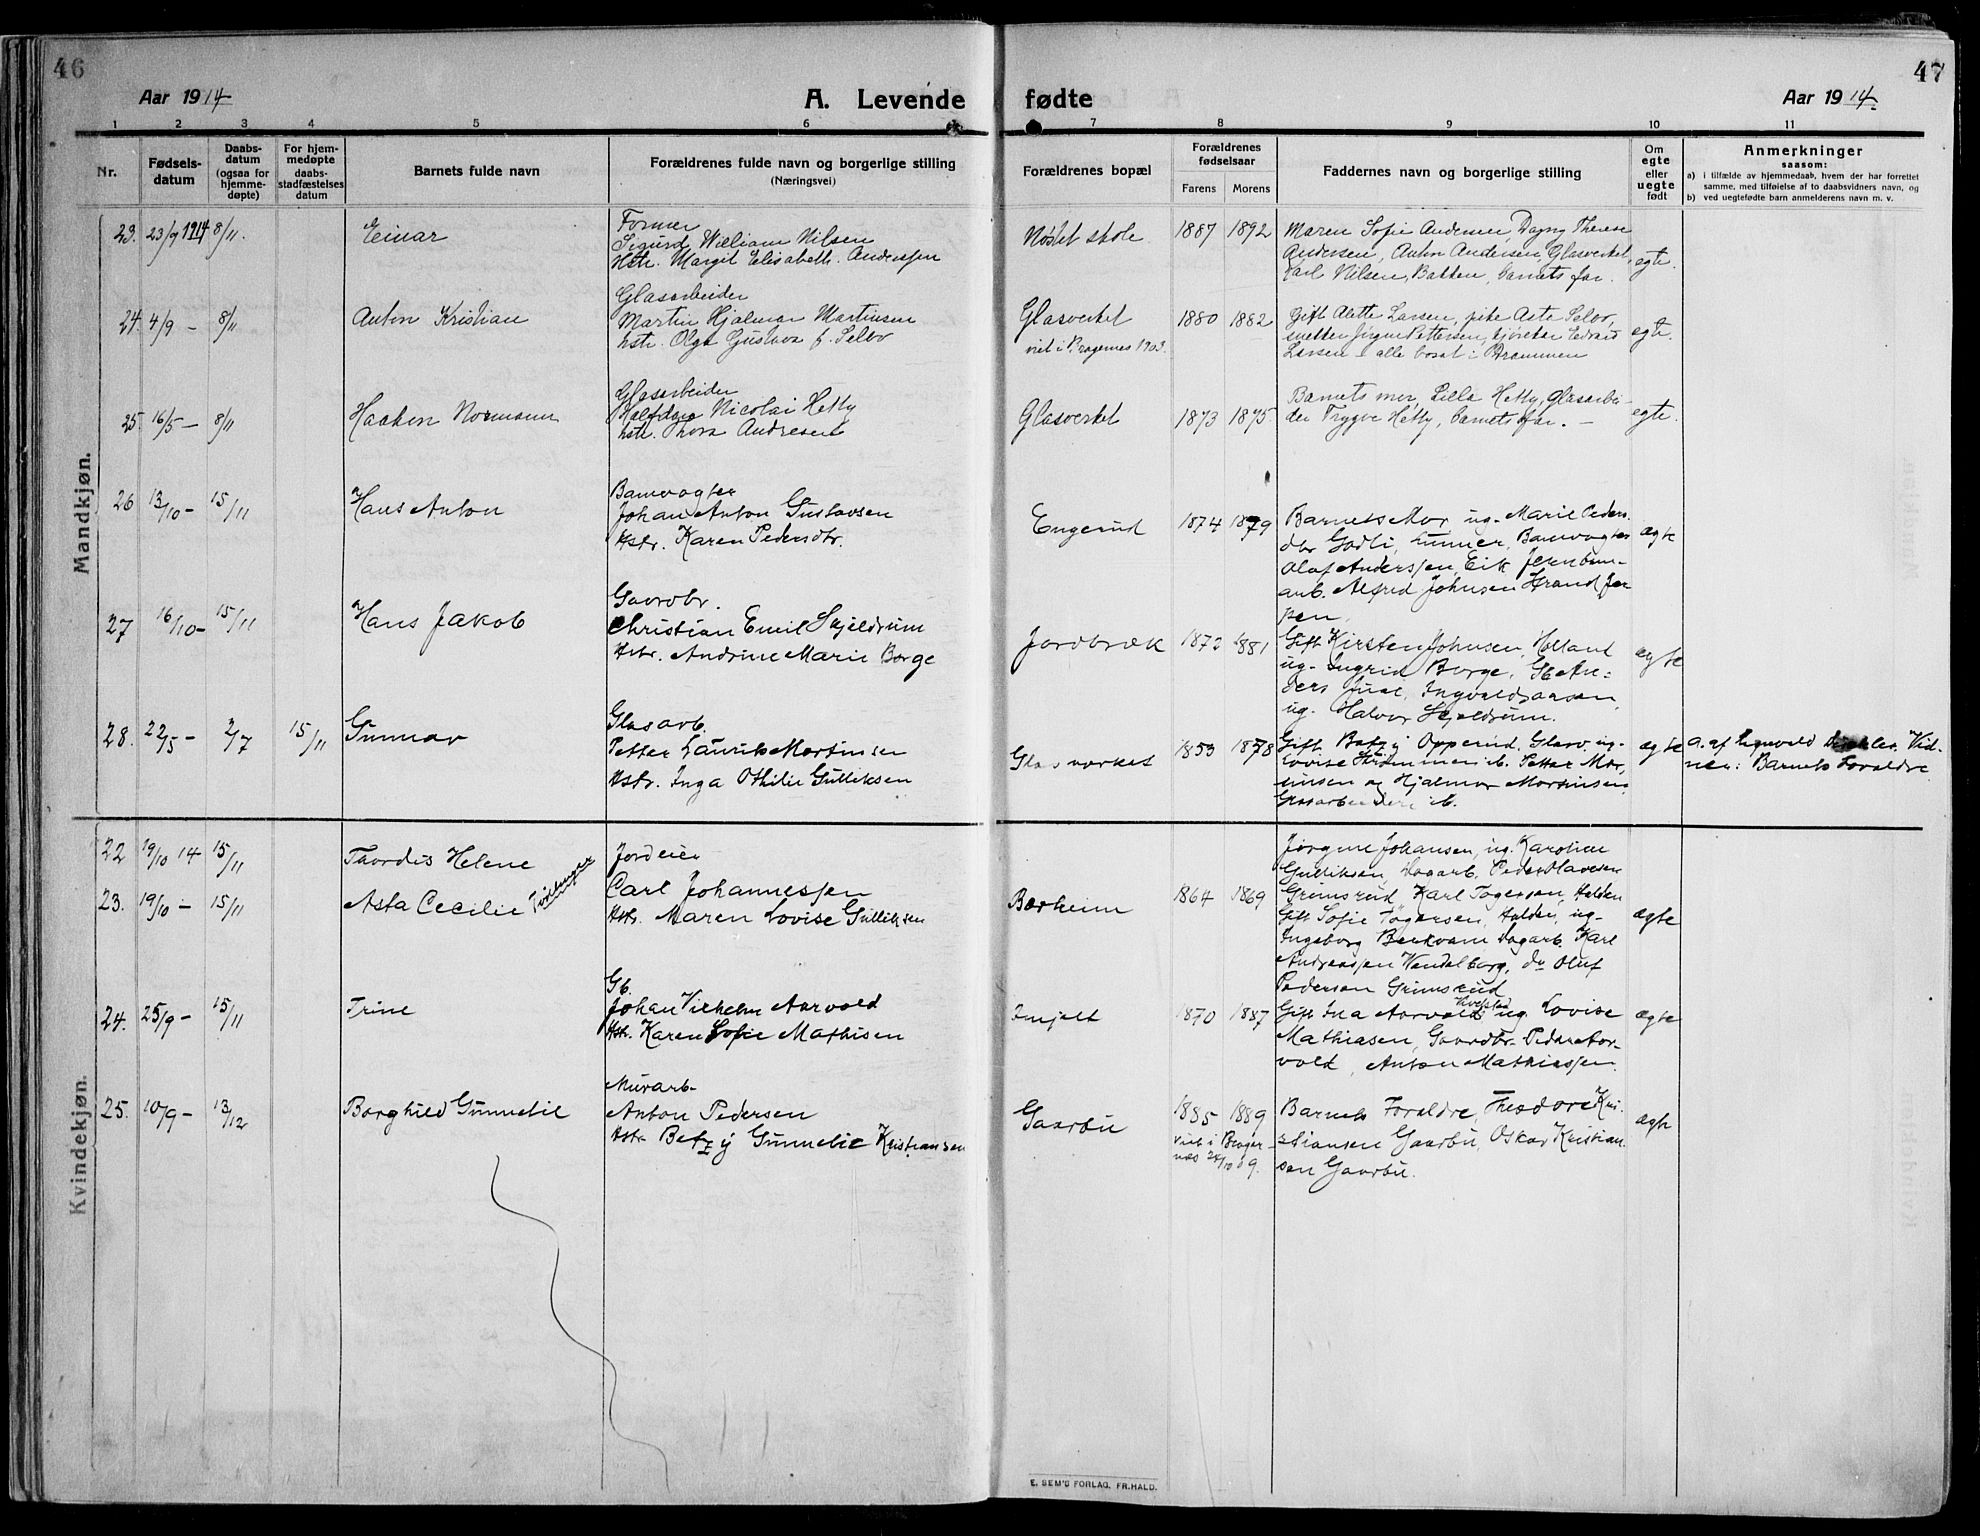 46
47
Aar 1914
A. Levende
fødte
Aar 1914.
1 2 3 4 5 6 7 8 9 10 11
Nr.
Fødsels-
datum
Daabs-
datum
(ogsaa for
hjemme-
døpte)
For hjem-
medøpte
daabs-
stadfæstelses
datum
Barnets fulde navn
Forældrenes fulde navn og borgerlige stilling
(Næringsvei)
Forældrenes bopæl
Forældrenes
fødselsaar
Farens Morens
Faddernes navn og borgerlige stilling
Om
egte
eller
uegte
født
Anmerkninger
saasom:
a) i tilfælde av hjemmedaab, hvem der har forrettet
samme, med tilføielse af to daabsvidners navn, og
b) ved uegtefødte barn anmelderens navn m. v.
Mandkjøn.
23. 23/9 1914 8/11. Einar
Former
Sigurd William Nilsen
Hstr. Margit Elisabeth Anderssen
Nøstet skole 1887 1892
Maren Sofie Andersen, Dagny Therese
Andersen, Anton Andersen Glasverket,
Karl Nilsen, Bakken, barnets far.
egte.
24. 4/9 — 8/11 Anton Kristian
Glasarbeider
Martin Hjalmar Martinsen
hstr. Olga Gustava f. Selbo
Glasverket
viet i Bragernes 1903.
1880 1882
Gift Alette Larsen, pike Asta Selbo,
snekker Pettersen, kjører Edvard
Larsen alle bosat i Drammen
egte.
25. 16/5 — 8/11 Haakon Normann
Glasarbeider
Halfdan Nicolai Hetty
hstr. Thora Andresen
Glasverket 1873 1875.
Barnets mor, Lilla Hetty, glasarbei-
der Trygve Hetty, barnets far. —
egte.
26 13/10 — 15/11 Hans Anton
Banevogter
Johan Anton Gustavsen
Hstr. Karen Pedersdtr.
Engerud 1874 1879
Barnets Mor, ug. Marie Peders
dtr Godli, Lunner, Banevogter
Olaf Anderssen, Eik Jernban-
arb. Alfred Johnsen Strand Jer
pen.
ægte
27 16/10 — 15/11 Hans Jakob
Gaardbr.
Christian Emil Skjeldrum
Hstr. Andrine Marie Borge
Jordbræk 1872 1881
Gift Kirsten Johnsen, Holland
ug. Ingrid Borge, Gb. An-
ders Juul, Ingvald Aasen,
ug. Halvor Skjeldrum.
ægte
28. 22/5 — 2/7 15/11 Gunnar
Glasarb.
Petter Laurits Martinsen
Hstr. Inga Othilie Gulliksen
Glasværket 1853 1878
Gift Betzy Opperud. Glasv. ug.
Lovise Strømmen ib. Petter Mar-
tinsen og Hjalmar Martinsen,
Glasarbeidere ib.
ægte
a. af Vid-
ner: Barnets Foraldre
Kvindekjøn.
22 19/10 14 15/11 Thordis Helene
23. 19/10 — 15/11 Asta Cecilie
Tvillinger
Jordeier
Carl Johannessen
Hstr. Maren Lovise Gulliksen
Bærheim 1864 1869
Jørgine Johansen, ug. Karoline
Gulliksen, Dagarb. Peder Olavesen
Grimsrud, Karl Togersen, Halden
Gift Sofie Togersen, Halden, ug-
Ingeborg Berkvam Dagarb. Karl
Andreassen Vendelborg, do Oluf
Pedersen Grimsrud
ægte
24. 25/9 — 15/11 Trine
Gb.
Johan Vilhelm Aarvold
Hstr. Karen Sofie Mathisen
1870 1887
Gift Ina Aarvold ug. Lovise
Mathiasen, Gaardbr. Peder Aar-
vold, Anton Mathiassen.
ægte
25. 10/9 — 13/12 Borghild Gunnelie
Murarb-
Anton Pedersen
Hstr Betzy Gunnelie Kristiansen
Gaarbu 1885 1889
viet i Brager-
næs 09.
Barnets Foraldre, Theodore Kri-
stiansen Gaarbu, Oskar Kristian
sen Gaarbu.
ægte
E. SEM'S FORLAG, FR.HALD.